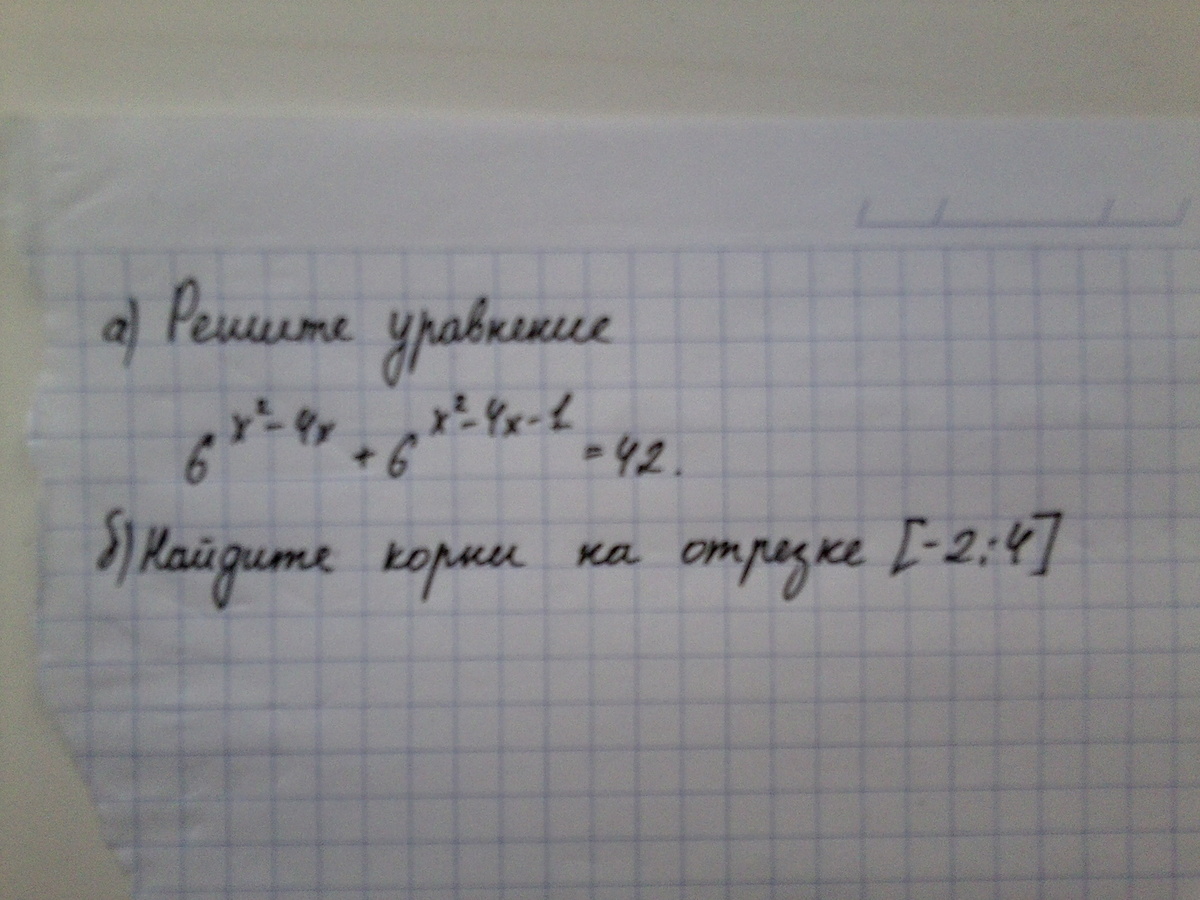 а) Решите уравнение
6^{x²-4x} + 6^{x²-4x-1} = 42.
б) Найдите корни на отрезке [-2;4]